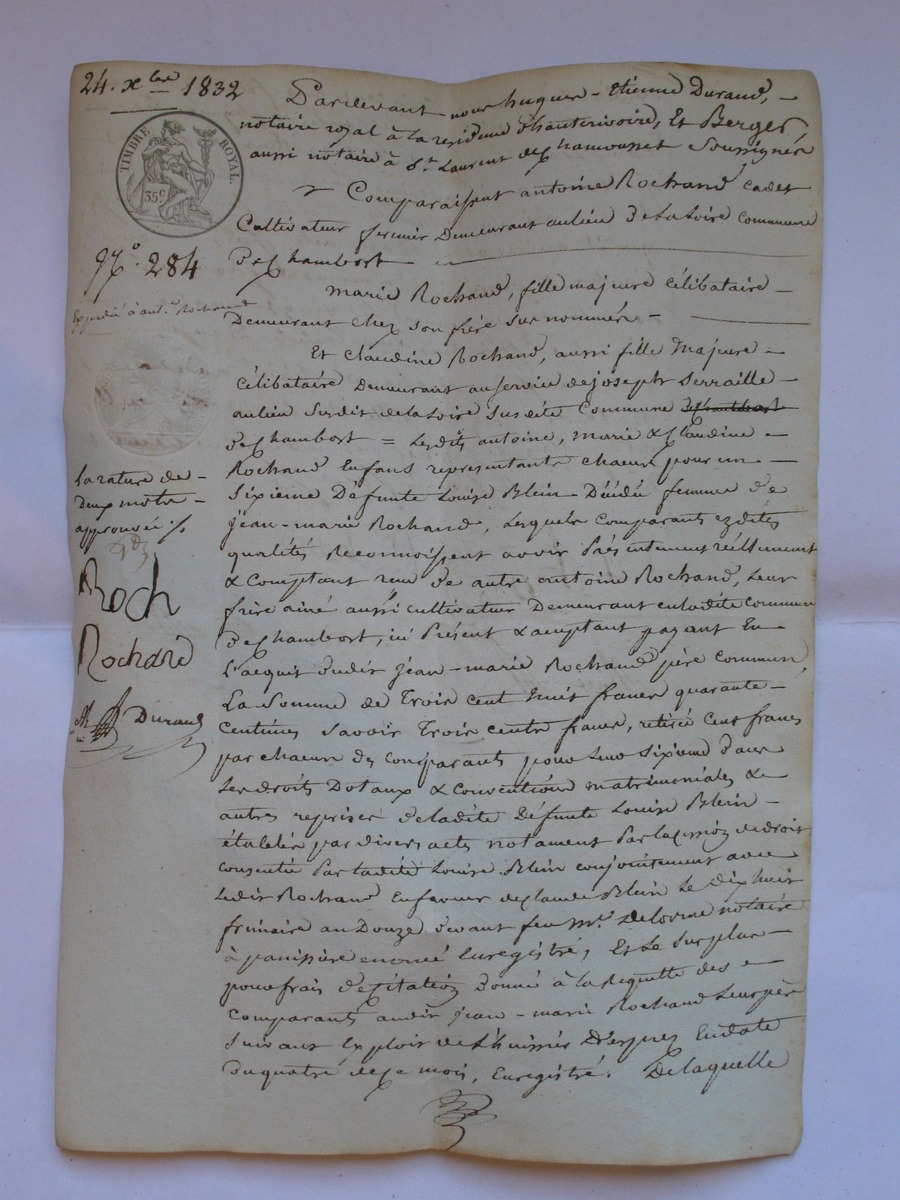 24. xbre 1832
TIMBRE ROYAL.
35c
N°. 284
Expédié à ant.e Rochand
La rature de
deux mots
approuvée ./.
Roch
Rochand
Durand
Pardevant nous hugues-Etienne Durand,
notaire royal à la residence d'hauterivoire, Et Berger,
aussi notaire à St. Laurent de Chamousset soussignés
Comparaissent antoine Rochand cadet
Cultivateur fermier Demeurant au lieu de La Loire Commune
De Chambost
Marie Rochand, fille majeure Célibataire
Demeurant chez son frère sus nommés
Et Claudine Rochand, aussi fille Majeure
Célibataire Demeurant au service de joseph Serraille
au lieu susdit de la Loire susdite Commune
de Chambost = Lesdits antoine, Marie & Claudine
Rochand Enfans representants chacun pour un
Sixieme Défunte Louise Blein Décédée femme de
jean-marie Rochand, Lesquels Comparants ezdites
qualités Reconnoissent avoir Présentement réellement
& Comptant reçu de autre antoine Rochand, Leur
frère ainé aussi Cultivateur Demeurant en ladite Commune
de Chambost, ici Présent & acceptant payant En
L'acquit dudit jean-marie Rochand père commun,
La Somme de Trois Cent huit francs quarante
Centimes Savoir Trois Cents francs, retiré Cent francs
par chacun des Comparants pour Leur sixième dans
Les droits Dotaux & conventions matrimoniales &
autres reprises de ladite Défunte Louise Blein
établies par divers actes notament Par la cession de droit
consentie Par ladite Louise Blein conjointement avec
Ledit Rochand En faveur de Claude Blein Le Dix huit
frimaire an Douze devant feu Mr. Delorme notaire
à panissière énoncé Enregistré, Et Le Surplus
pour frais de Citation donné à La Requette des
Comparants audit jean-marie Rochand Leur père
suivant Exploit de L'huissier En date
Du quatre de Ce mois, Enregistré. De laquelle